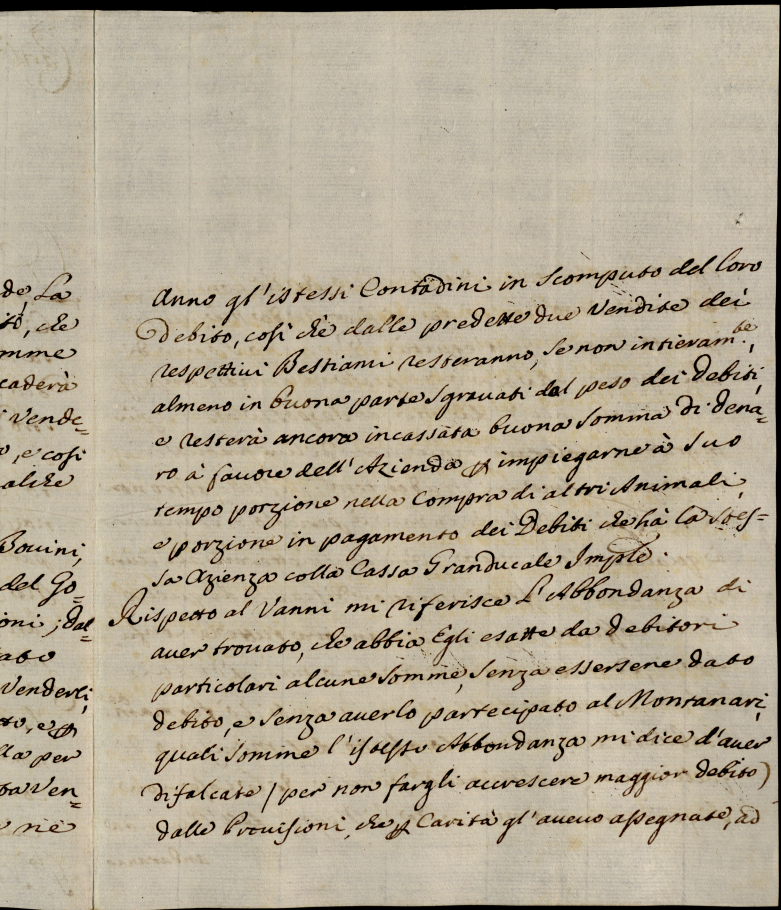 de, La
ito, che
omme
caderà
i vende=
o, e così
alche
Bovini,
del Go=
oni; dal=
ato
Venderli;
tto, e p
lla per
ta Ven=
e ne
Anno gl'istessi Contadini in scomputo del loro
Debito, così chè dalle predette due Vendite dei
respettivi Bestiami resteranno, se non intieram.te,
almeno in buona parte sgravati dal peso dei Debiti,
e resterà ancora incassata buona somma di dena=
ro à favore dell'Azienda p impiegarne à suo
tempo porzione nella Compra di altri Animali,
e porzione in pagamento dei Debiti che hà la stes=
sa Azienza colla Cassa Granducale Imple.
Rispetto al Vanni mi riferisce l'Abbondanza di
aver trovato, che abbia Egli esatte da debitori
particolari alcune somme, senza essersene dato
debito, e senza averlo partecipato al Montanari,
quali somme l'istesso Abbondanza mi dice d'aver
difalcate / per non fargli accrescere maggior debito)
dalle Provisioni, che p Carità gl'avevo assegnate, ad